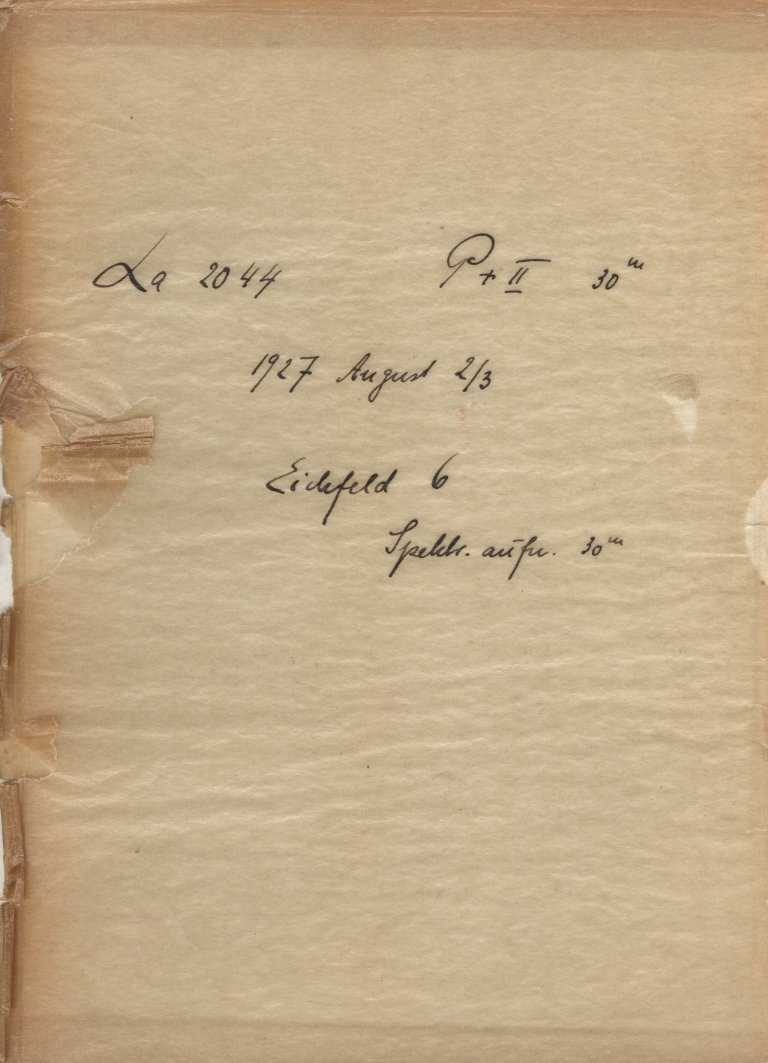 La 2044 P + II 30ᵐ
1927 August 2/3
Eichfeld 6
Spektr. aufn. 30ᵐ